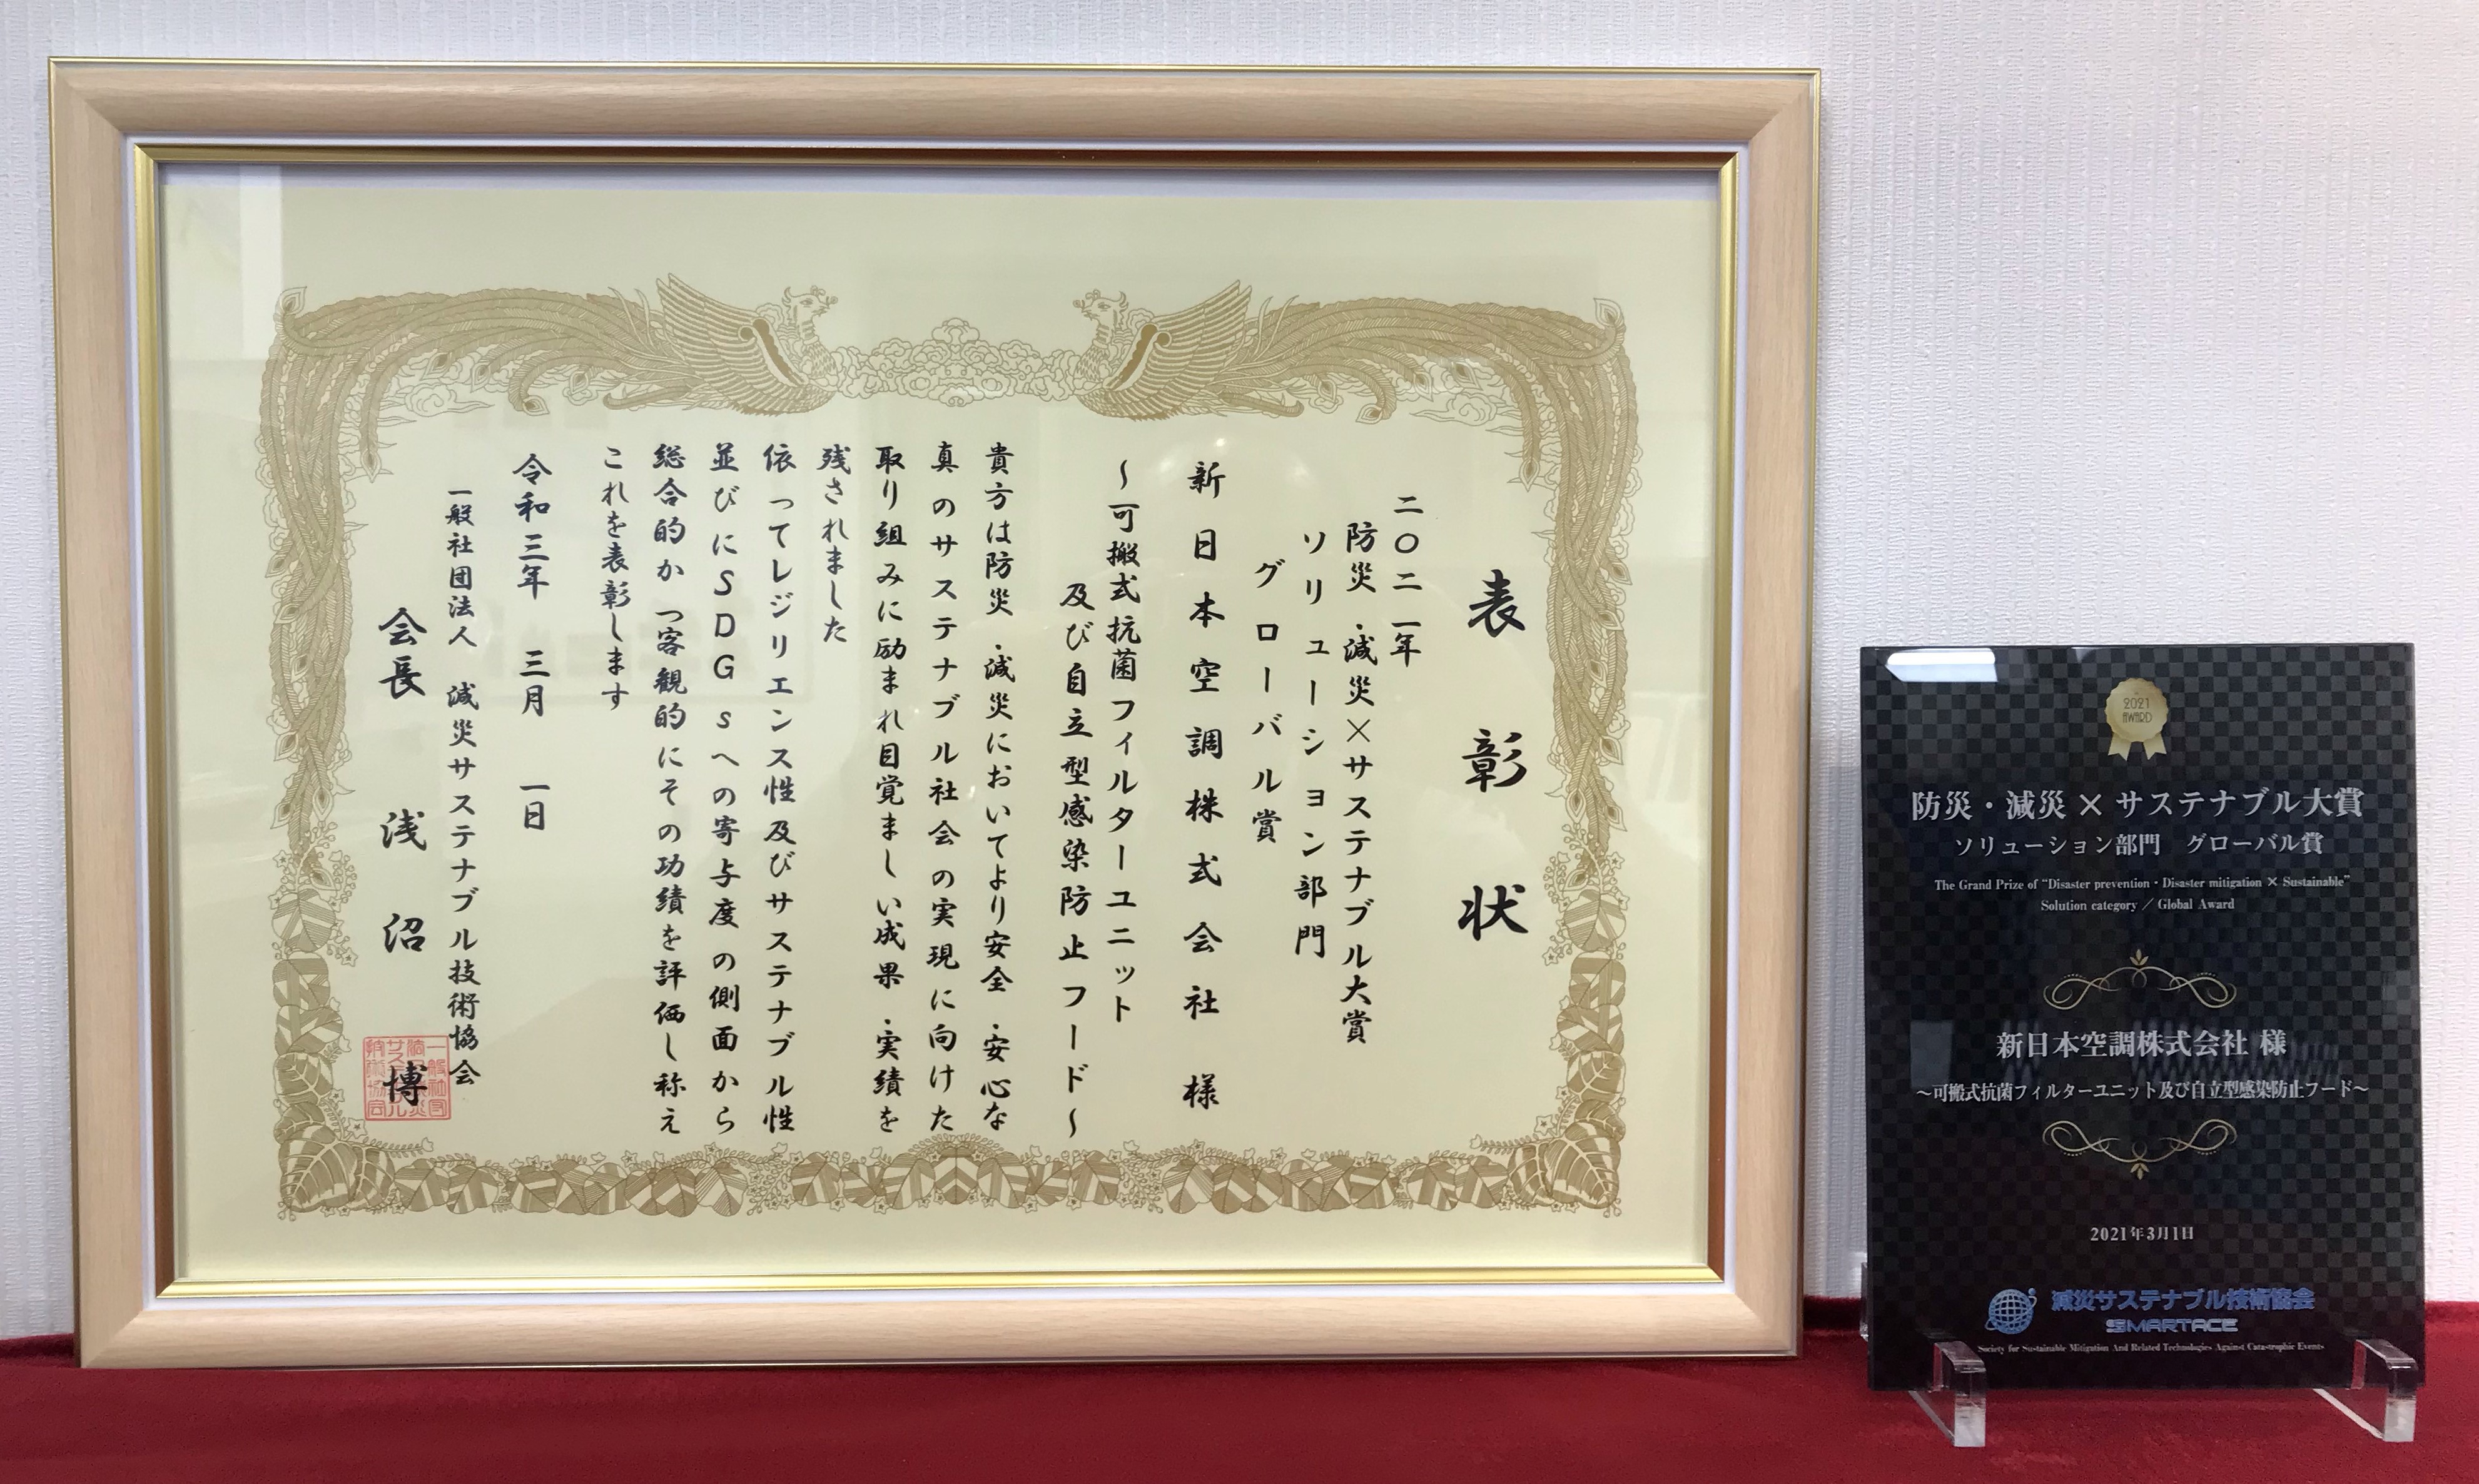 表彰状
二〇二一年
防災・減災×サステナブル大賞
ソリューション部門
グローバル賞
新日本空調株式会社 様
～可搬式抗菌フィルターユニット
及び自立型感染防止フード～
貴方は防災・減災においてより安全・安心な
真のサステナブル社会の実現に向けた
取り組みに励まれ目覚ましい成果・実績を
残されました
依ってレジリエンス性及びサステナブル性
並びにSDGsへの寄与度の側面から
総合的かつ客観的にその功績を評価し称え
これを表彰します
令和三年 三月 一日
一般社団法人 減災サステナブル技術協会
会長 浅沼 博
2021
AWARD
防災・減災×サステナブル大賞
ソリューション部門 グローバル賞
The Grand Prize of “Disaster prevention・Disaster mitigation × Sustainable”
Solution category ／ Global Award
新日本空調株式会社 様
～可搬式抗菌フィルターユニット及び自立型感染防止フード～
2021年3月1日
減災サステナブル技術協会
SMARTACE
Society for Sustainable Mitigation And Related Technologies Against Catastrophic Events